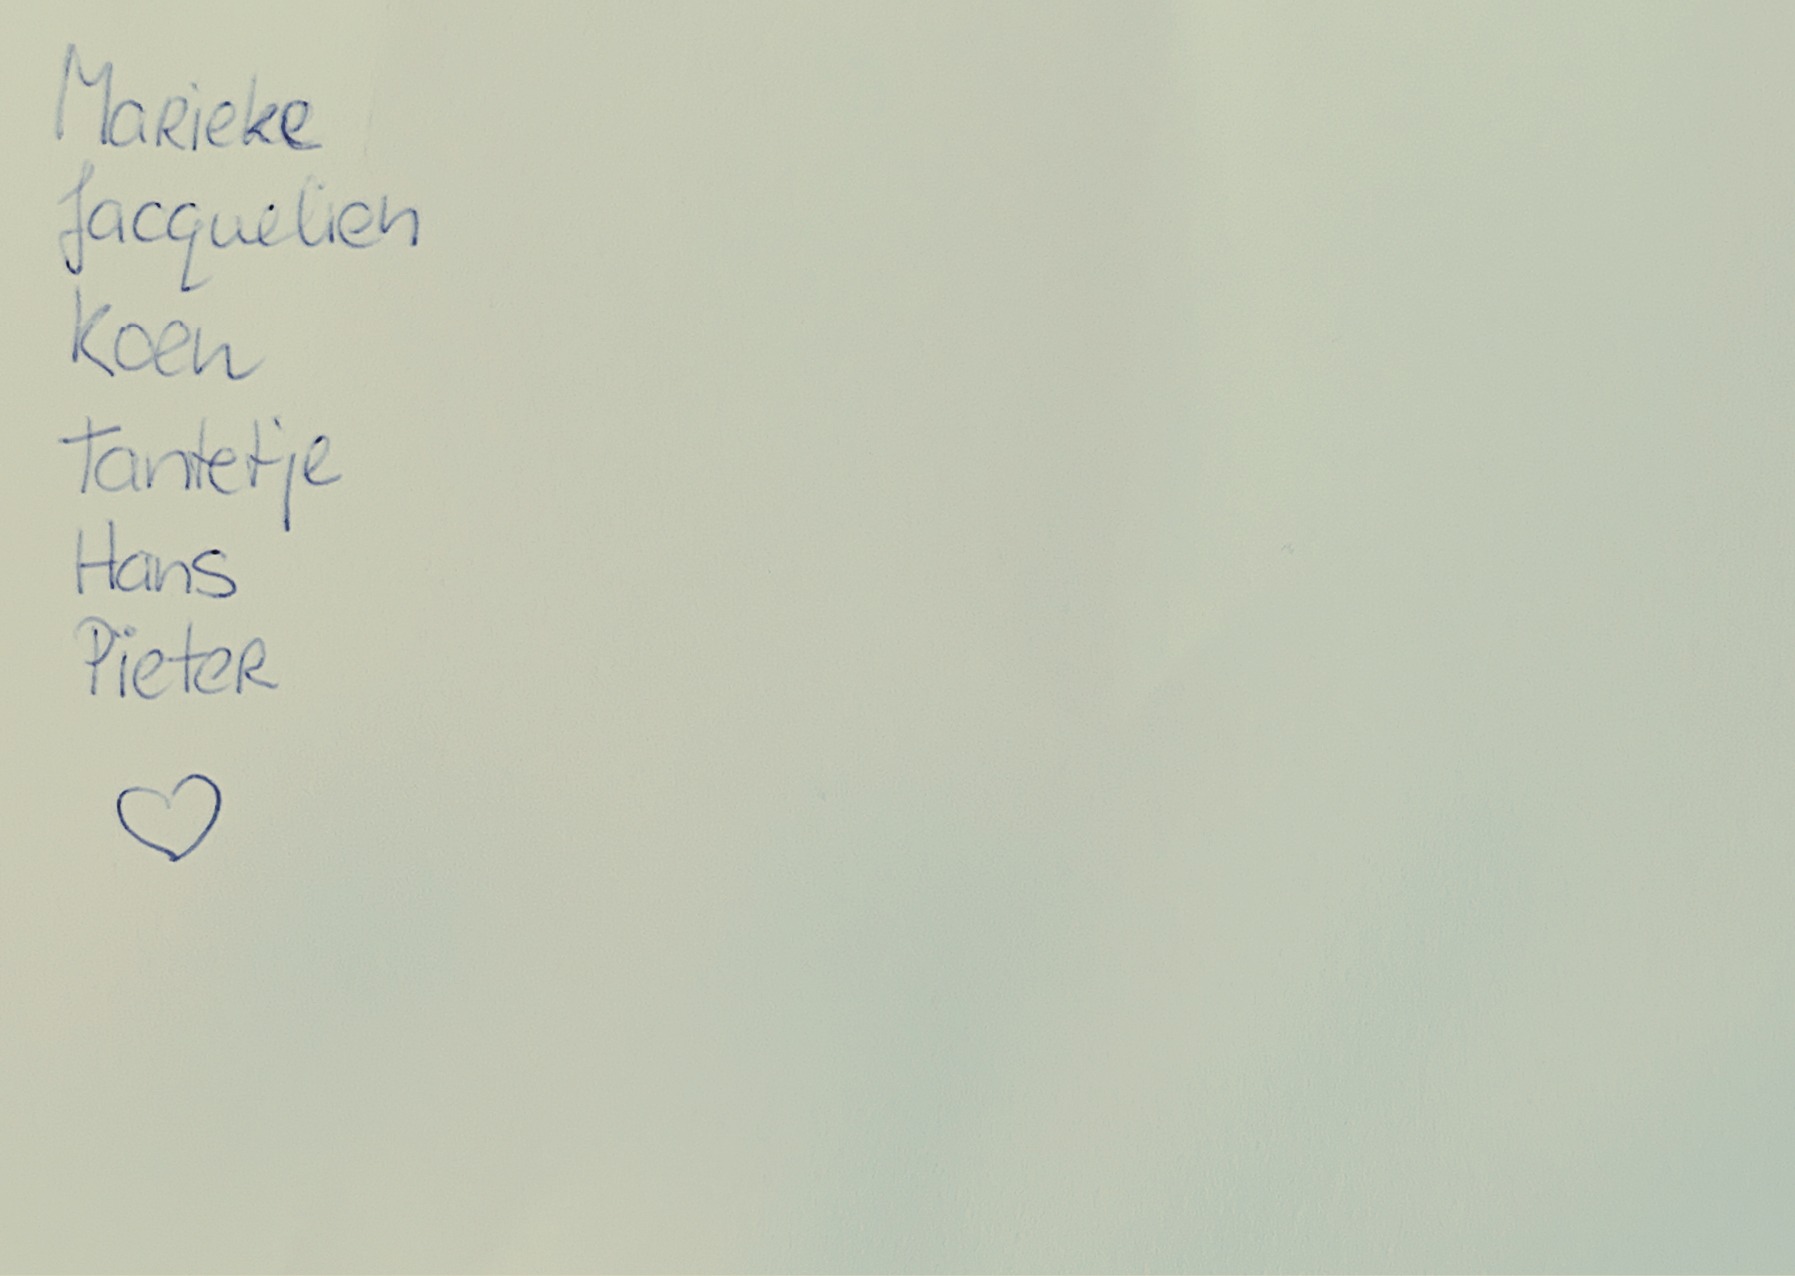 Marieke
Jacquelien
Koen
Tantetje
Hans
Pieter